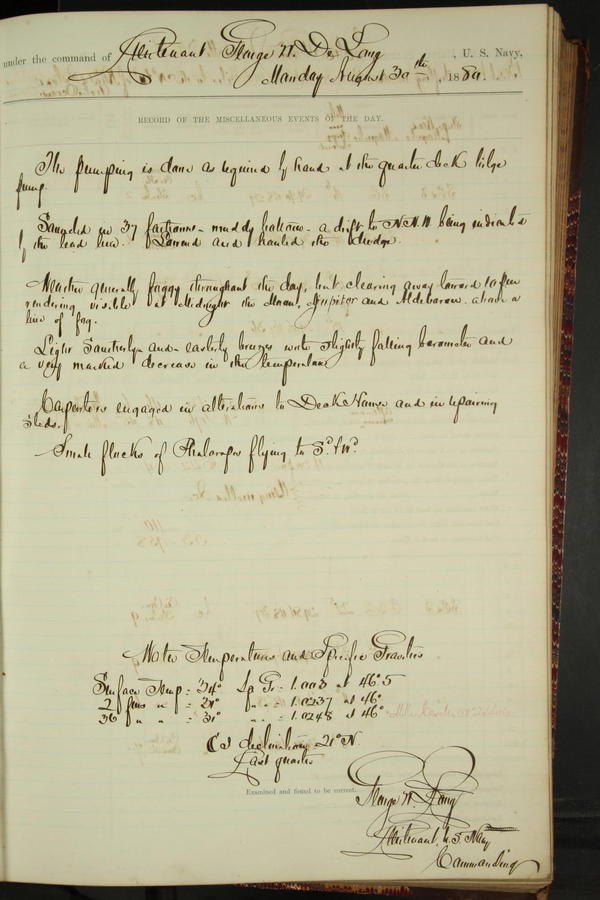 under the command of Lieutenant George W. De Long, U. S. Navy,
Monday August 30th, 1880.
RECORD OF THE MISCELLANEOUS EVENTS OF THE DAY.
The pumping is done as required by hand at the quarter deck bilge
pump.
Sounded in 37 fathoms - muddy bottom - a drift to N.N.W. being indicated
by the lead line. Lowered and hauled the dredge.
Weather generally foggy throughout the day, but clearing away toward
rendering visible at Midnight the Moon, Jupiter and Aldebaran above a
line of fog.
Light Southerly and easterly breezes with slightly falling barometer and
a very marked decrease in the temperature
Carpenters engaged in alterations to Deck House and in repairing
Sleds.
Small flocks of Phalaropes flying to Sd & Wd.
Water Temperatures and Specific Gravities
Surface Temp = 34° Sp Gr = 1.003 at 46°.5
2 fms " = 31° " " = 1.0237 at 46°
36 " " = 31° " " = 1.0248 at 46°
declination 21° N.
Last quarter
Examined and found to be correct.
George W. De Long
Lieutenant, U.S. Navy
Commanding